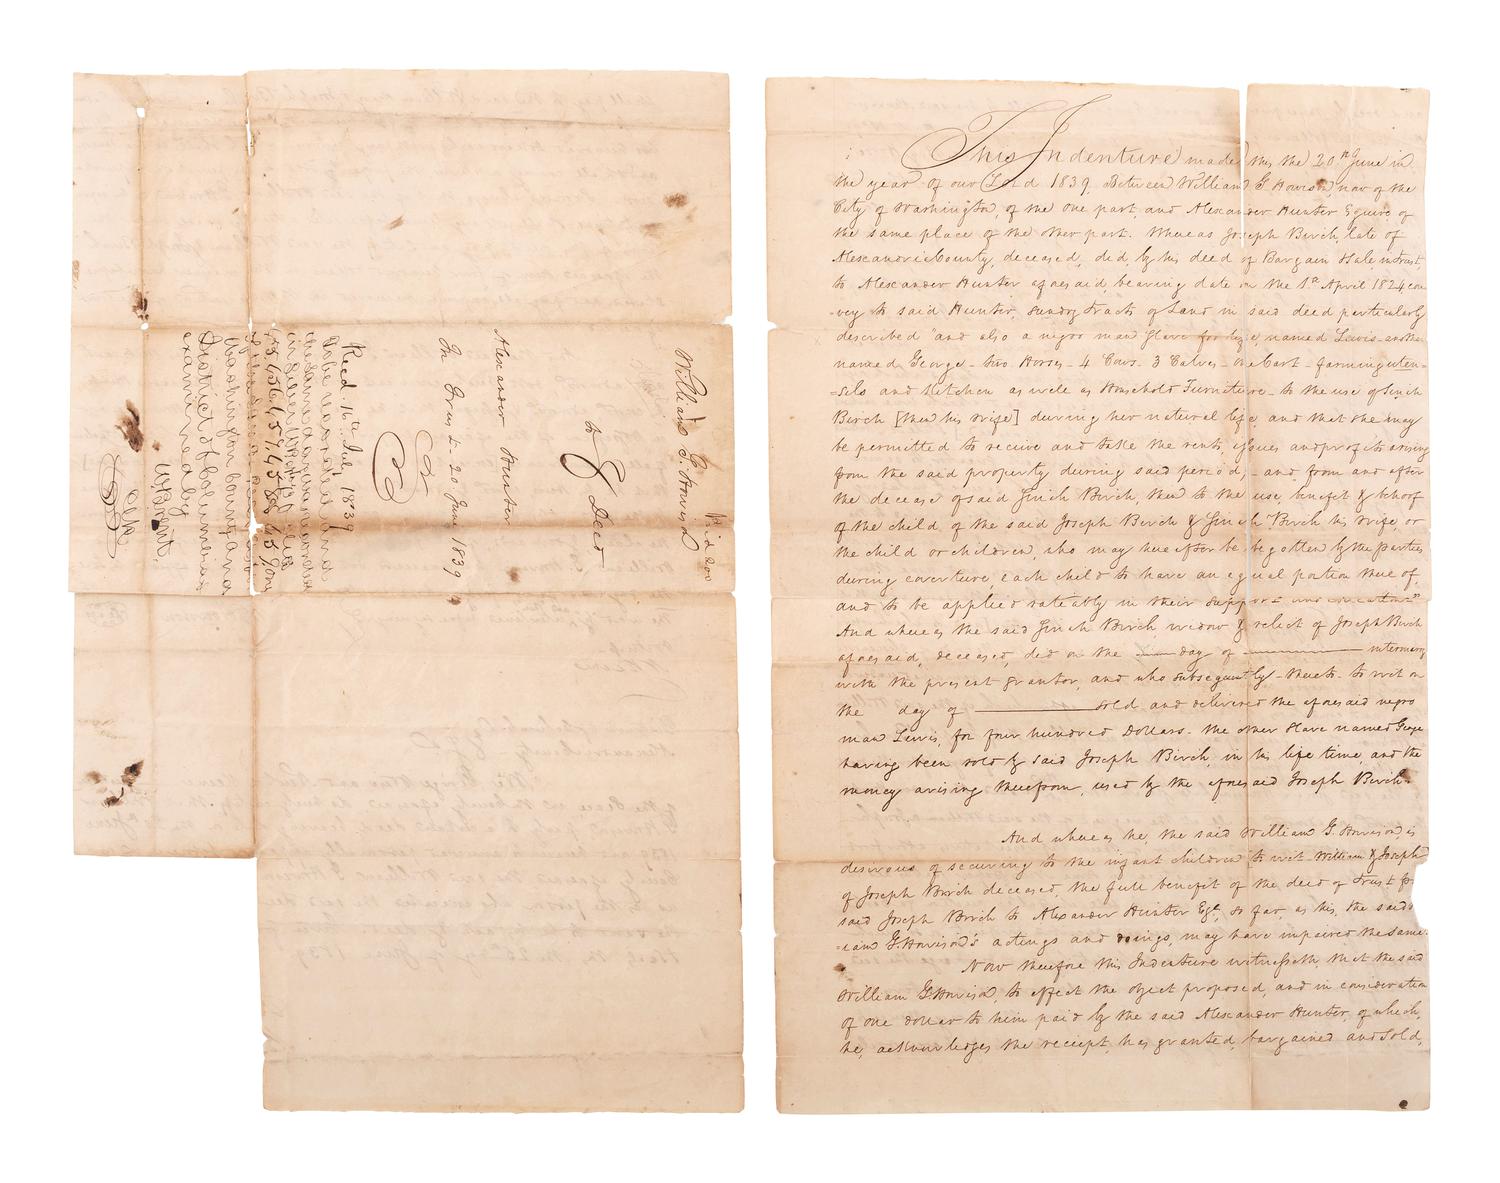 William G. Howison
to } Deed
Alexander Hunter
In Trust 20. June 1839
Recd. 16th July 1839
to be recorded and
the same day was recorded
in Liber W.B. No.
Washington County and
District of Columbia
examined by
W Brent
Clk
This Indenture made this the 20th June in
the year of our Lord 1839, Between William G Howison, now of the
City of Washington, of the one part, and Alexander Hunter Esquire of
the same place of the other part. Whereas Joseph Birch, late of
Alexandria County, deceased, did, by his deed of Bargain & Sale in trust,
to Alexander Hunter aforesaid bearing date on the 1st April 1824 con
-vey to said Hunter, sundry tracts of Land in said deed particularly
described "and also a negro man Slave for life, named Lewis another
named George - two Horses - 4 Cows. 3 Calves - one Cart - farming uten=
=sils and Kitchen as well as Household Furniture - to the use of
Birch [then his wife] during her natural life, and that she may
be permitted to receive and take the rents, issues and profits arising
from the said property during said period, - and from and after
the decease of said Birch, then to the use, benefit & behoof
of the child of the said Joseph Birch & Birch his wife, or
the child or children, who may hereafter be begotten by the parties
during coverture, each child to have an equal portion thereof,
and to be applied rateably in their support and education"
And whereas the said Birch, widow & relict of Joseph Birch
aforesaid, deceased, did on the day of intermarry
with the present grantor, and who subsequently thereto - to wit on
the day of sold and delivered the aforesaid negro
man Lewis, for four hundred Dollars. the other Slave named George
having been sold by said Joseph Birch, in his life time, and the
money arising therefrom, used by the aforesaid Joseph Birch.
And whereas he, the said William G. Howison, is
desirous of securing to the infant children to wit William & Joseph
of Joseph Birch deceased, the full benefit of the deed of trust fr.
said Joseph Birch to Alexander Hunter Esqr. so far, as his, the said
=iam G. Howison's actings and doings, may have impaired the same.
Now therefore this Indenture witnesseth, that the said
William G. Howison, to effect the object proposed, and in consideration
of one dollar to him paid by the said Alexander Hunter, of which,
he, acknowledges the receipt, has granted, bargained and sold,